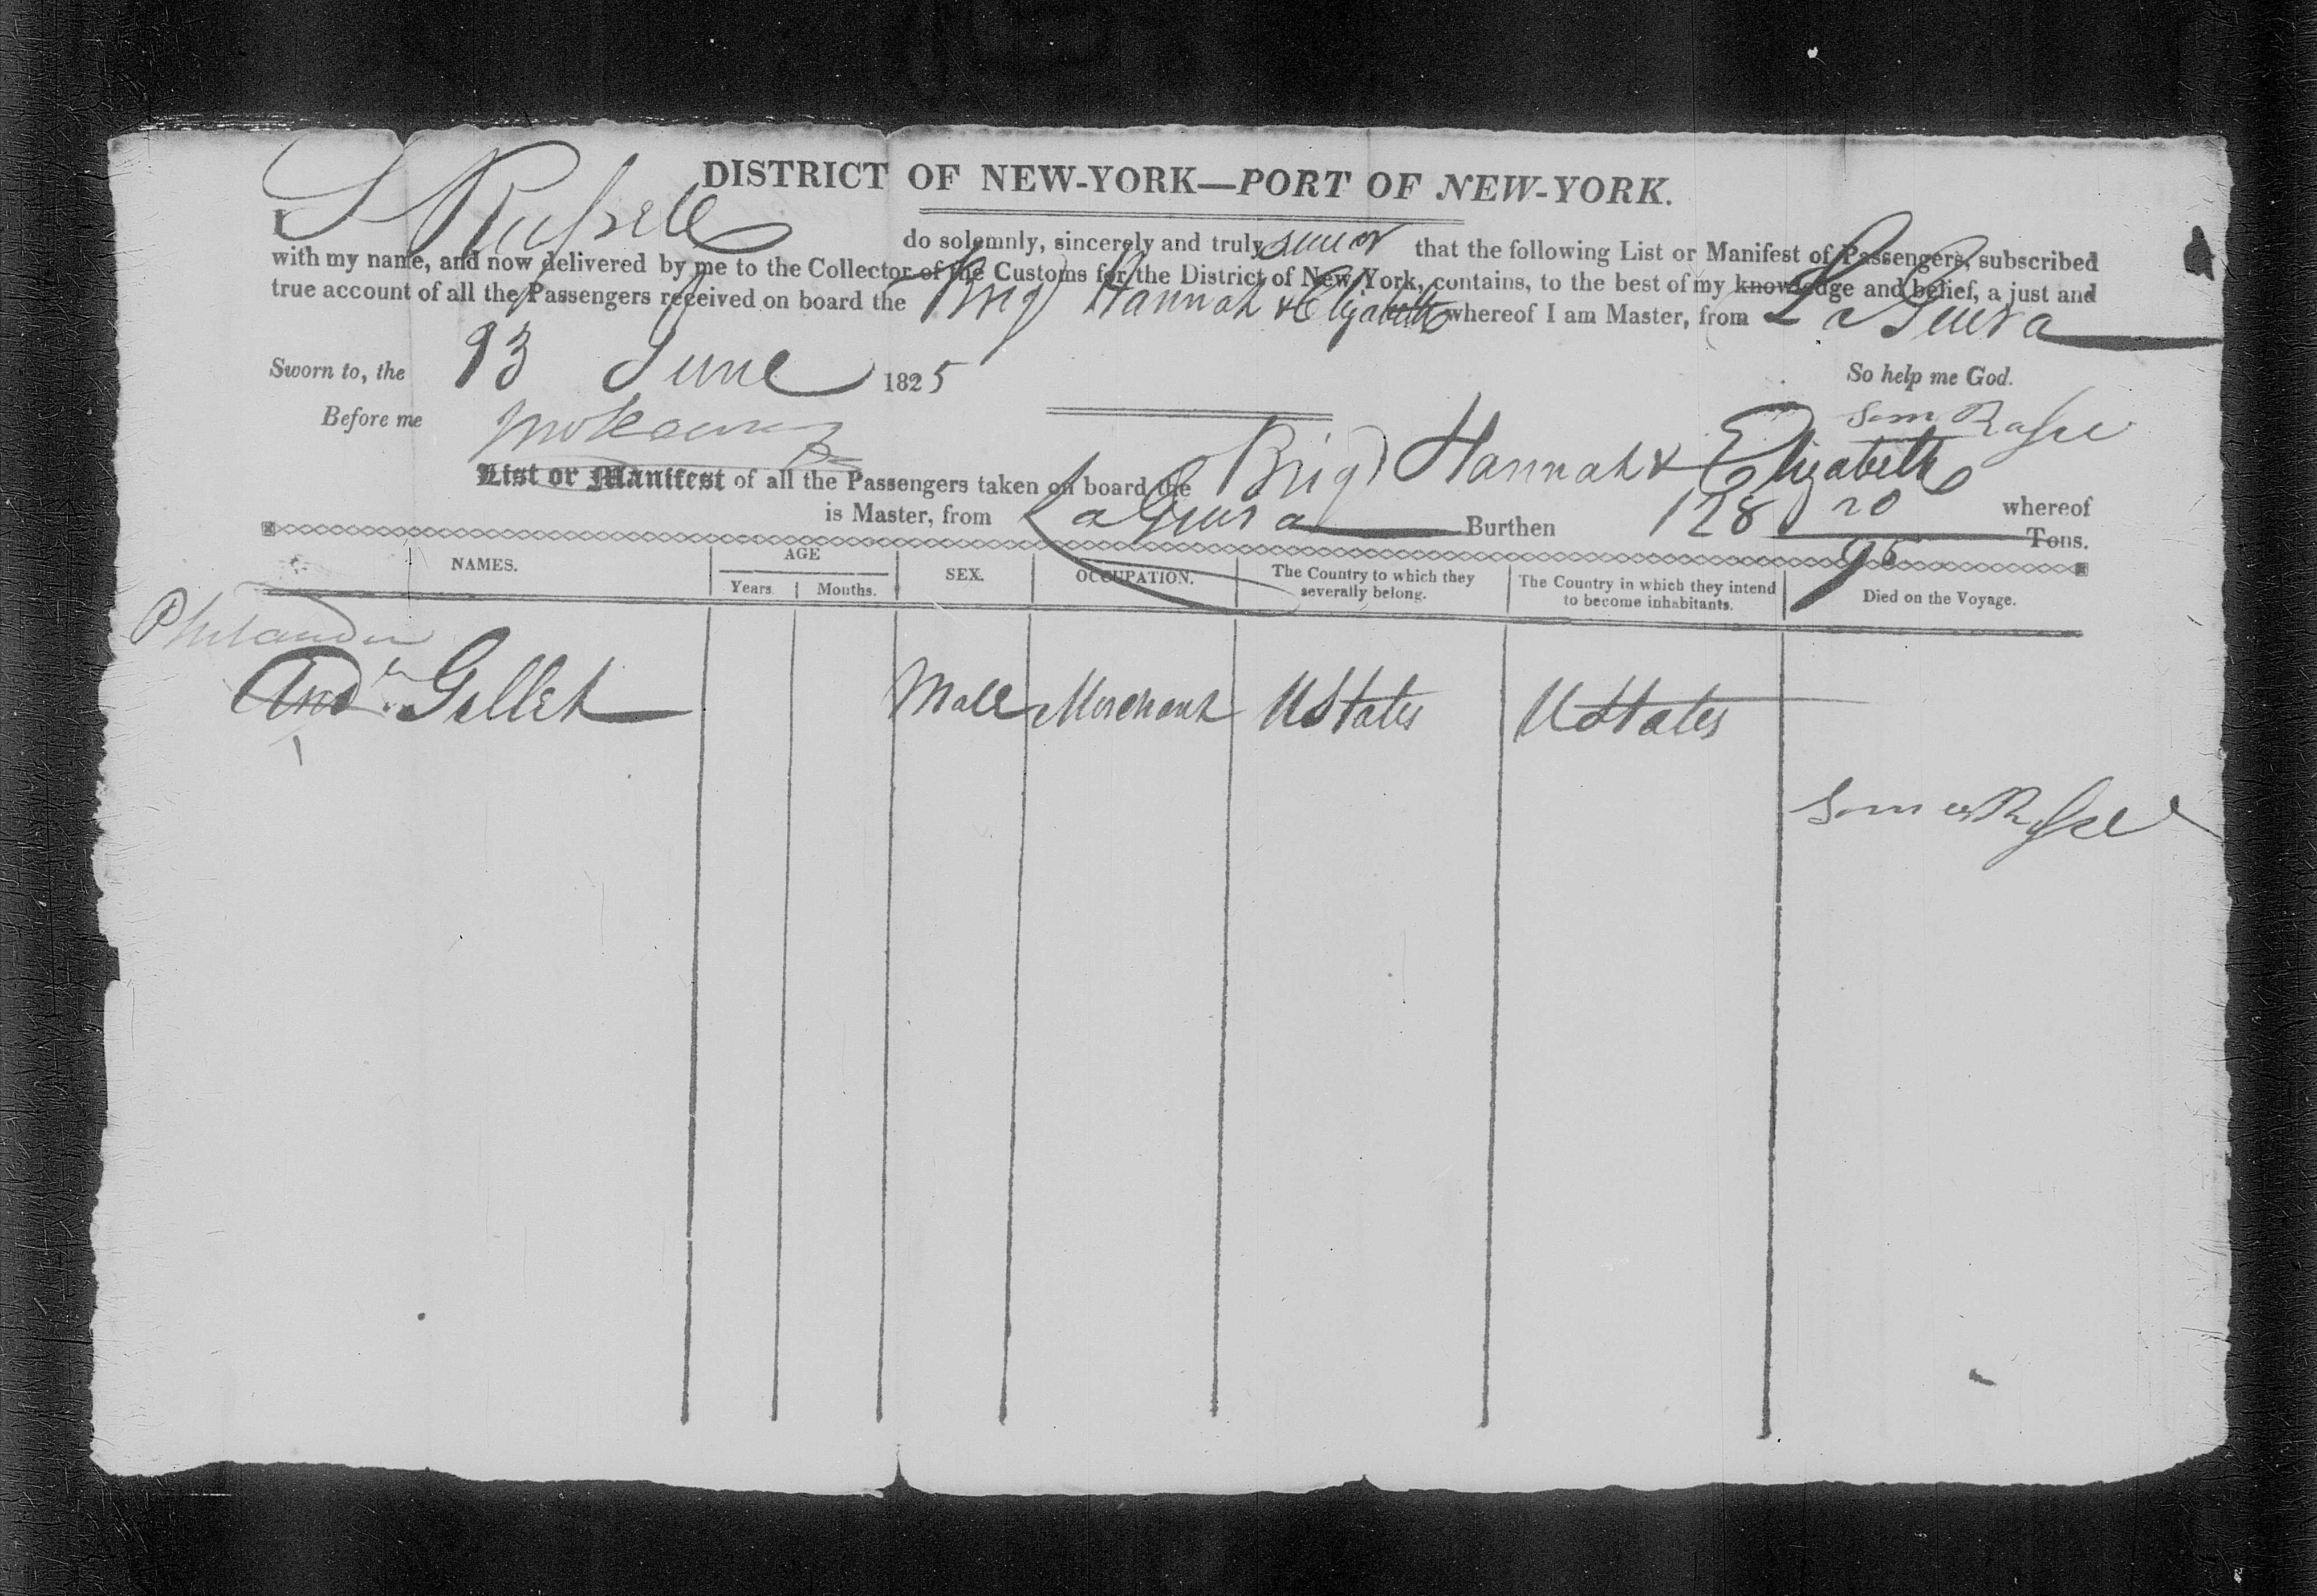 DISTRICT OF NEW-YORK—PORT OF NEW-YORK.
I S Russell do solemnly, sincerely and truly swear that the following List or Manifest of Passengers, subscribed
with my name, and now delivered by me to the Collector of the Customs for the District of New York, contains, to the best of my knowledge and belief, a just and
true account of all the Passengers received on board the Brig Hannah & Elizabeth whereof I am Master, from La Guira
Sworn to, the 13 June 1825 So help me God.
Before me
List or Manifest of all the Passengers taken on board the Brig Hannah & Elizabeth whereof
is Master, from La Guira Burthen 128 20/95 Tons.
NAMES. AGE SEX. OCCUPATION. The Country to which they severally belong. The Country in which they intend to become inhabitants. Died on the Voyage.
Years. Months.
Philander
And Gillet Male Merchant UStates UStates